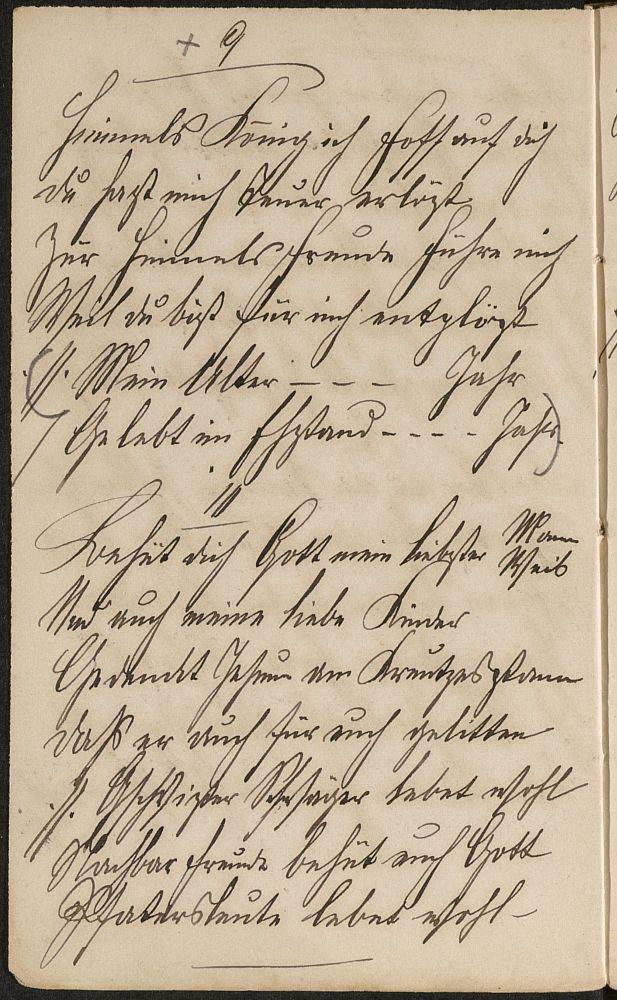 + 9
Himmels König ich hoff auf dich
du hast mich Teuer erlöst
Zur Himmels Freude führe mich
Weil du bist für mich entplöst
(//: Mein Alter – – – Jahr
Gelebt im Ehstand - - - - Jahr)
10
Behüt dich Gott mein liebster Mann
Weib
Und auch meine liebe Kinder
Gedenckt Jesum am Kreutzesstam
daß er auch für euch gelitten
//: Gschwister Schwäger lebet wohl
Nachbar Freunde behüt euch Gott
lebet wohl –